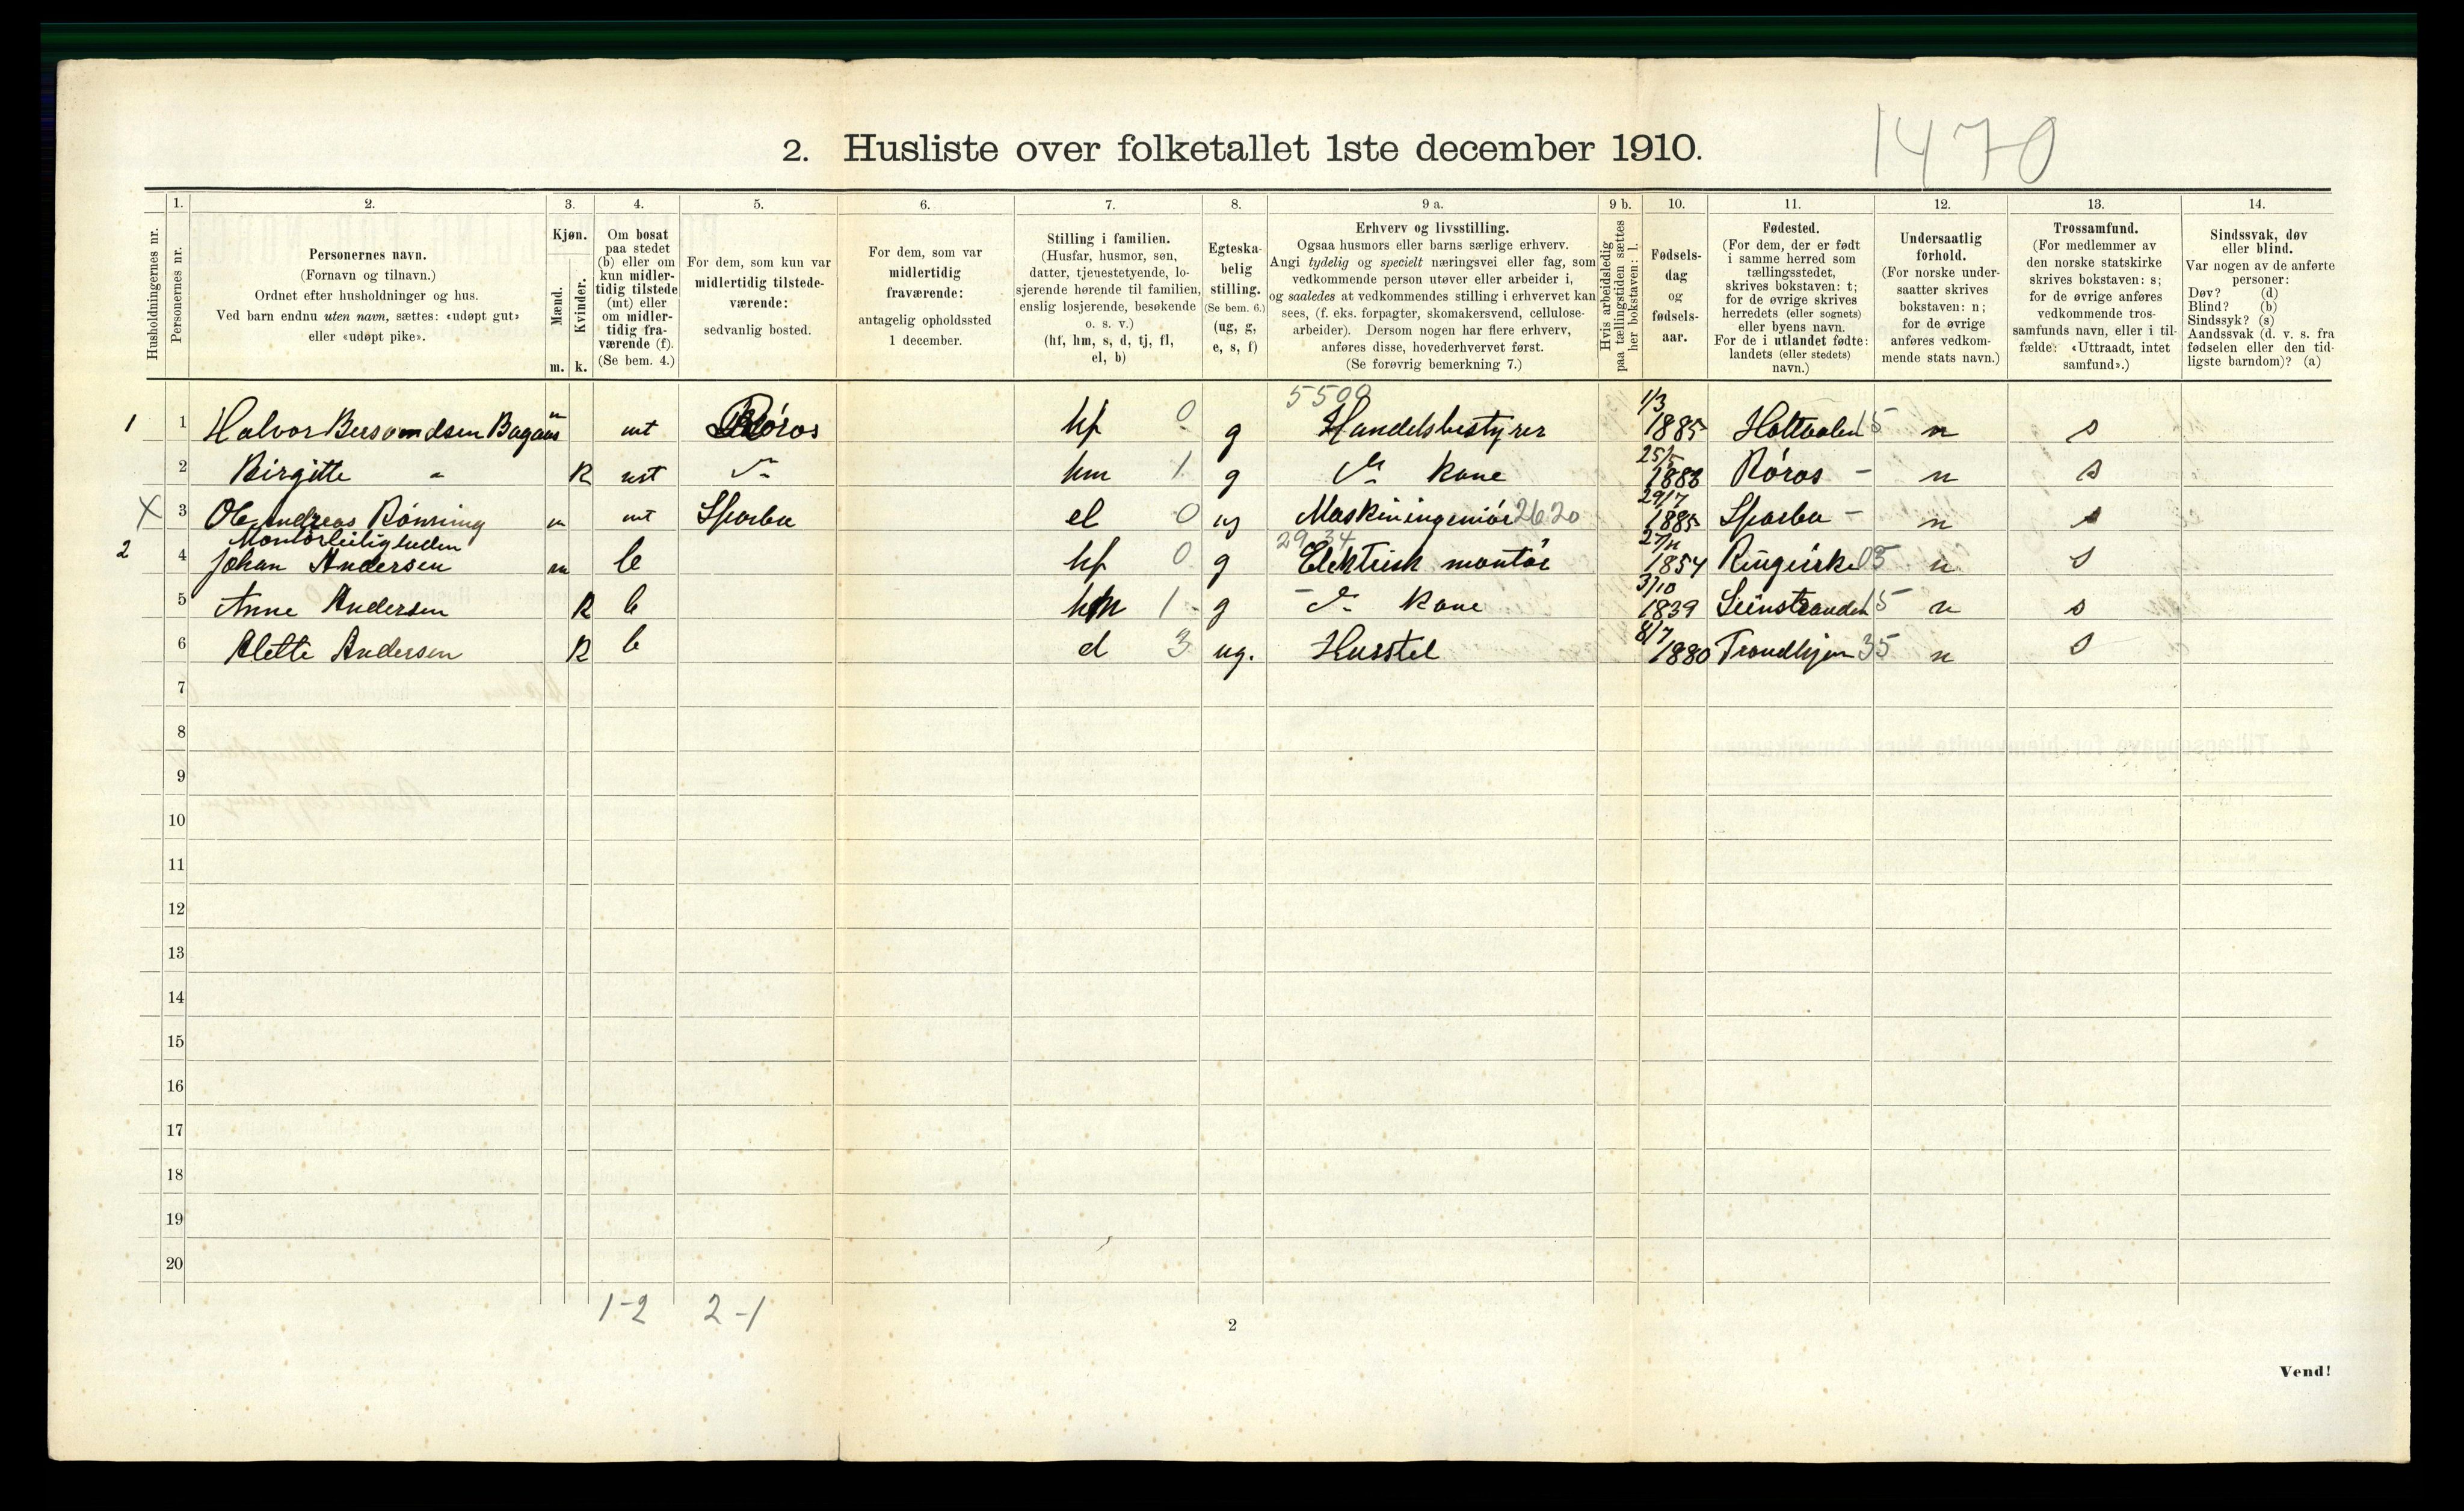 2. Husliste over folketallet 1ste december 1910.
1470
Husholdningernes nr.
1.
Personernes nr.
2.
Personernes navn.
(Fornavn og tilnavn.)
Ordnet efter husholdninger og hus.
Ved barn endnu uten navn, sættes: «udøpt gut»
eller «udøpt pike».
3.
Kjøn.
Mænd.
Kvinder.
m. k.
4.
Om bosat
paa stedet
(b) eller om
kun midler-
tidig tilstede
(mt) eller
om midler-
tidig fra-
værende (f).
(Se bem. 4.)
5.
For dem, som kun var
midlertidig tilstede-
værende:
sedvanlig bosted.
6.
For dem, som var
midlertidig
fraværende:
antagelig opholdssted
1 december.
7.
Stilling i familien.
(Husfar, husmor, søn,
datter, tjenestetyende, lo-
sjerende hørende til familien,
enslig losjerende, besøkende
o. s. v.)
(hf, hm, s, d, tj, fl,
el, b)
8.
Egteska-
belig
stilling.
(Se bem. 6.)
(ug, g,
e, s, f)
9 a.
Erhverv og livsstilling.
Ogsaa husmors eller barns særlige erhverv.
Angi tydelig og specielt næringsvei eller fag, som
vedkommende person utøver eller arbeider i,
og saaledes at vedkommendes stilling i erhvervet kan
sees, (f. eks. forpagter, skomakersvend, cellulose-
arbeider). Dersom nogen har flere erhverv,
anføres disse, hovederhvervet først.
(Se forøvrig bemerkning 7.)
9 b.
Hvis arbeidsledig
paa tællingstiden sættes
her bokstaven: l.
10.
Fødsels-
dag
og
fødsels-
aar.
11.
Fødested.
(For dem, der er født
i samme herred som
tællingsstedet,
skrives bokstaven: t;
for de øvrige skrives
herredets (eller sognets)
eller byens navn.
For de i utlandet fødte:
landets (eller stedets)
navn.)
12.
Undersaatlig
forhold.
(For norske under-
saatter skrives
bokstaven: n;
for de øvrige
anføres vedkom-
mende stats navn.)
13.
Trossamfund.
(For medlemmer av
den norske statskirke
skrives bokstaven: s;
for de øvrige anføres
vedkommende tros-
samfunds navn, eller i til-
fælde: «Uttraadt, intet
samfund».)
14.
Sindssvak, døv
eller blind.
Var nogen av de anførte
personer:
Døv? (d)
Blind? (b)
Sindssyk? (s)
Aandssvak (d. v. s. fra
fødselen eller den tid-
ligste barndom)? (a)
5500 1/3
1 1 Halvor m mt Røros hf 0 g Handelsbestyrer 1885 Holtaalen 15 n s
25/5
2 Birgitte " k mt hm 1 g kone Røros - n s
29/7
X 3 Ole Andreas Rönning m mt Sparbu el 0 ug Maskiningeniör 2620 1885 Sparbu - n s
2934
2 4 Johan Andersen m b hf 0 g Elektrisk montör 1854 Ringerike 05 n s
3/10
5 Anne Andersen k b hm 1 - g kone 1839 Leinstranden 15 n s
8/7
6 Alette Andersen k b d 3 ug. Husstel 1880 Trondhjem 35 n s
7
8
9
10
11
12
13
14
15
16
17
18
19
20
1-2 2-1
2
Vend!